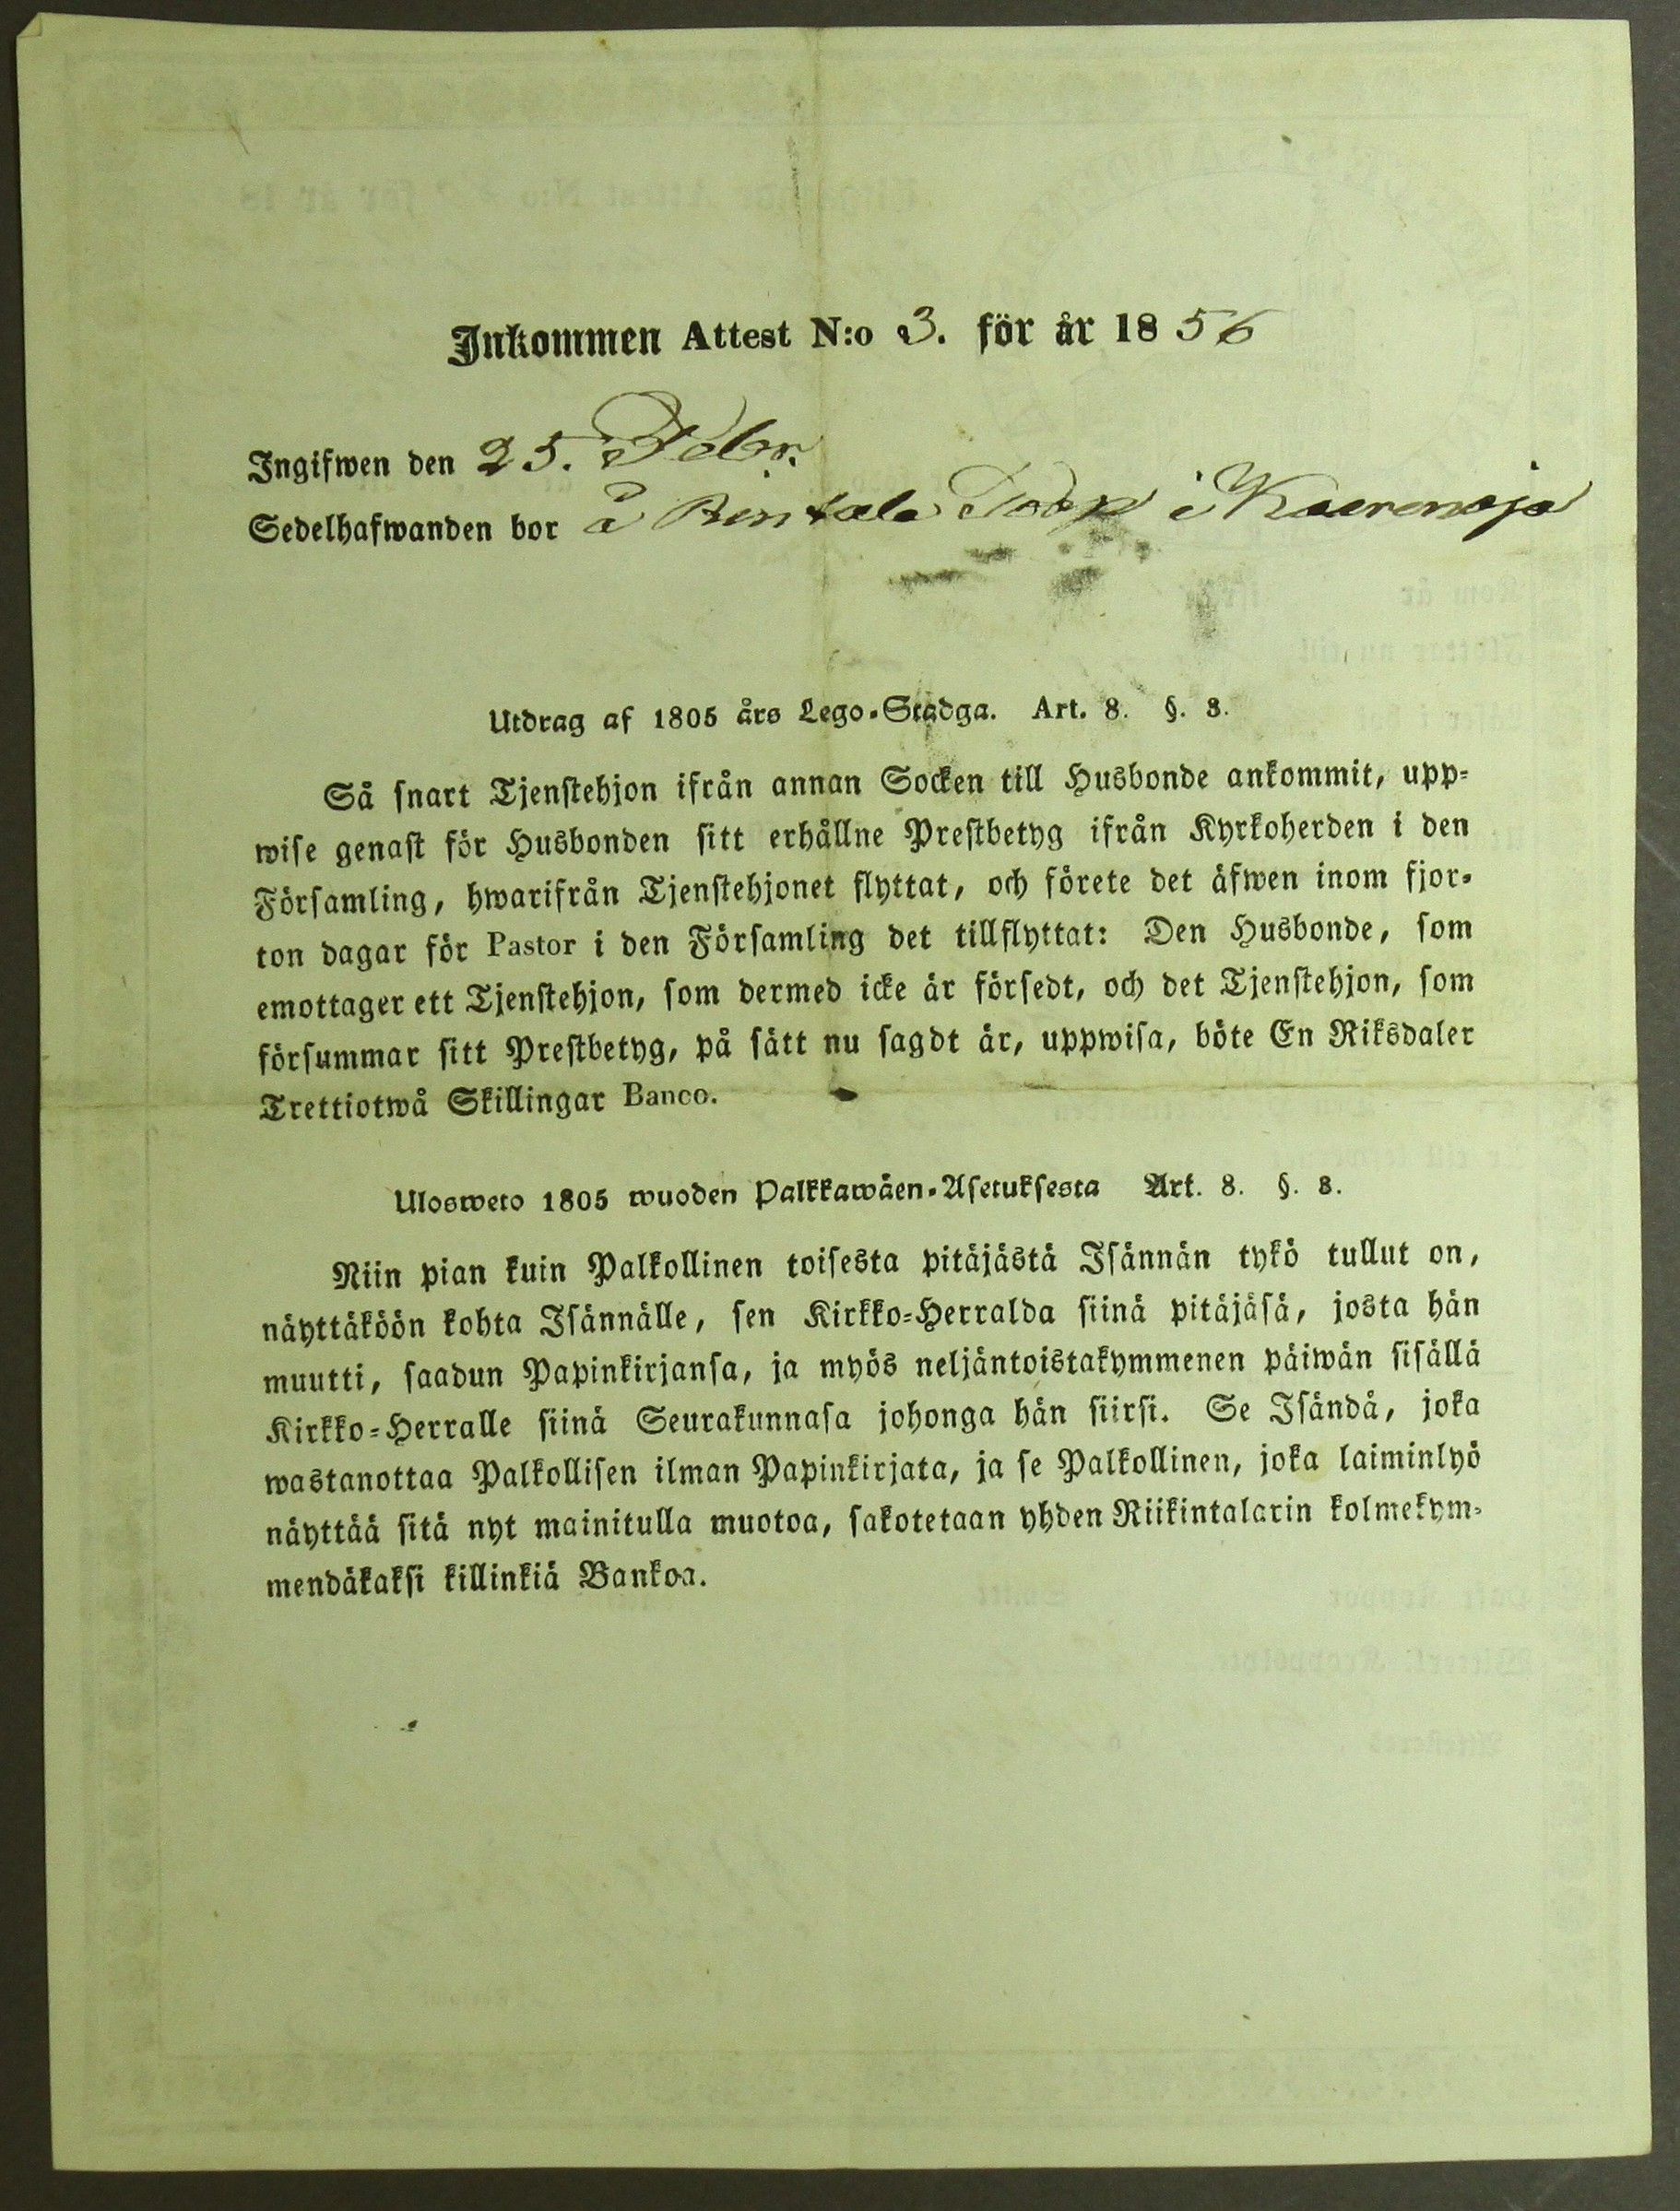 Inkommen Attest N:o 3. för år 1856
Ingifwen den 25. Febr.
Sedelhafwanden bor å Rentala Torp i Kaerenoja
Utdrag af 1805 års Lego-Stadga. Art. 8. §. 3.
Så snart Tjenstehjon ifrån annan Socken till Husbonde ankommit, upp-
wise genast för Husbonden sitt erhållne Prestbetyg ifrån Kyrkoherden i den
Församling, hwarifrån Tjenstehjonet flyttat, och förete det äfwen inom fjor-
ton dagar för Pastor i den Församling det tillflyttat: Den Husbonde, som
emottager ett Tjenstehjon, som dermed icke är försedt, och det Tjenstehjon, som
försummar sitt Prestbetyg, på sätt nu sagdt är, uppwisa, böte En Riksdaler
Trettiotwå Skillingar Banco.
Ulosweto 1805 wuoden Palkkawäen-Asetuksesta Art. 8. §. 3.
Niin pian kuin Palkollinen toisesta pitäjästä Isännän tykö tullut on,
näyttäköön kohta Isännälle, sen Kirkko-Herralda siinä pitäjäsä, josta hän
muutti, saadun Papinkirjansa, ja myös neljäntoistakymmenen päiwän sisällä
Kirkko-Herralle siinä Seurakunnasa johonga hän siirsi. Se Isändä, joka
wastanottaa Palkollisen ilman Papinkirjata, ja se Palkollinen, joka laiminlyö
näyttää sitä nyt mainitulla muotoa, sakotetaan yhden Riikintalarin kolmekym-
mendäkaksi killinkiä Bankoa.